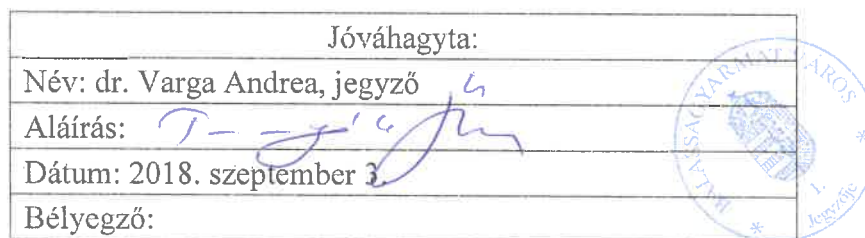 Jóváhagyta:
Név: dr. Varga Andrea, jegyző
Aláírás:
Dátum: 2018. szeptember 3.
Bélyegző:
BALASSAGYARMAT VÁROS
Jegyzője
1.